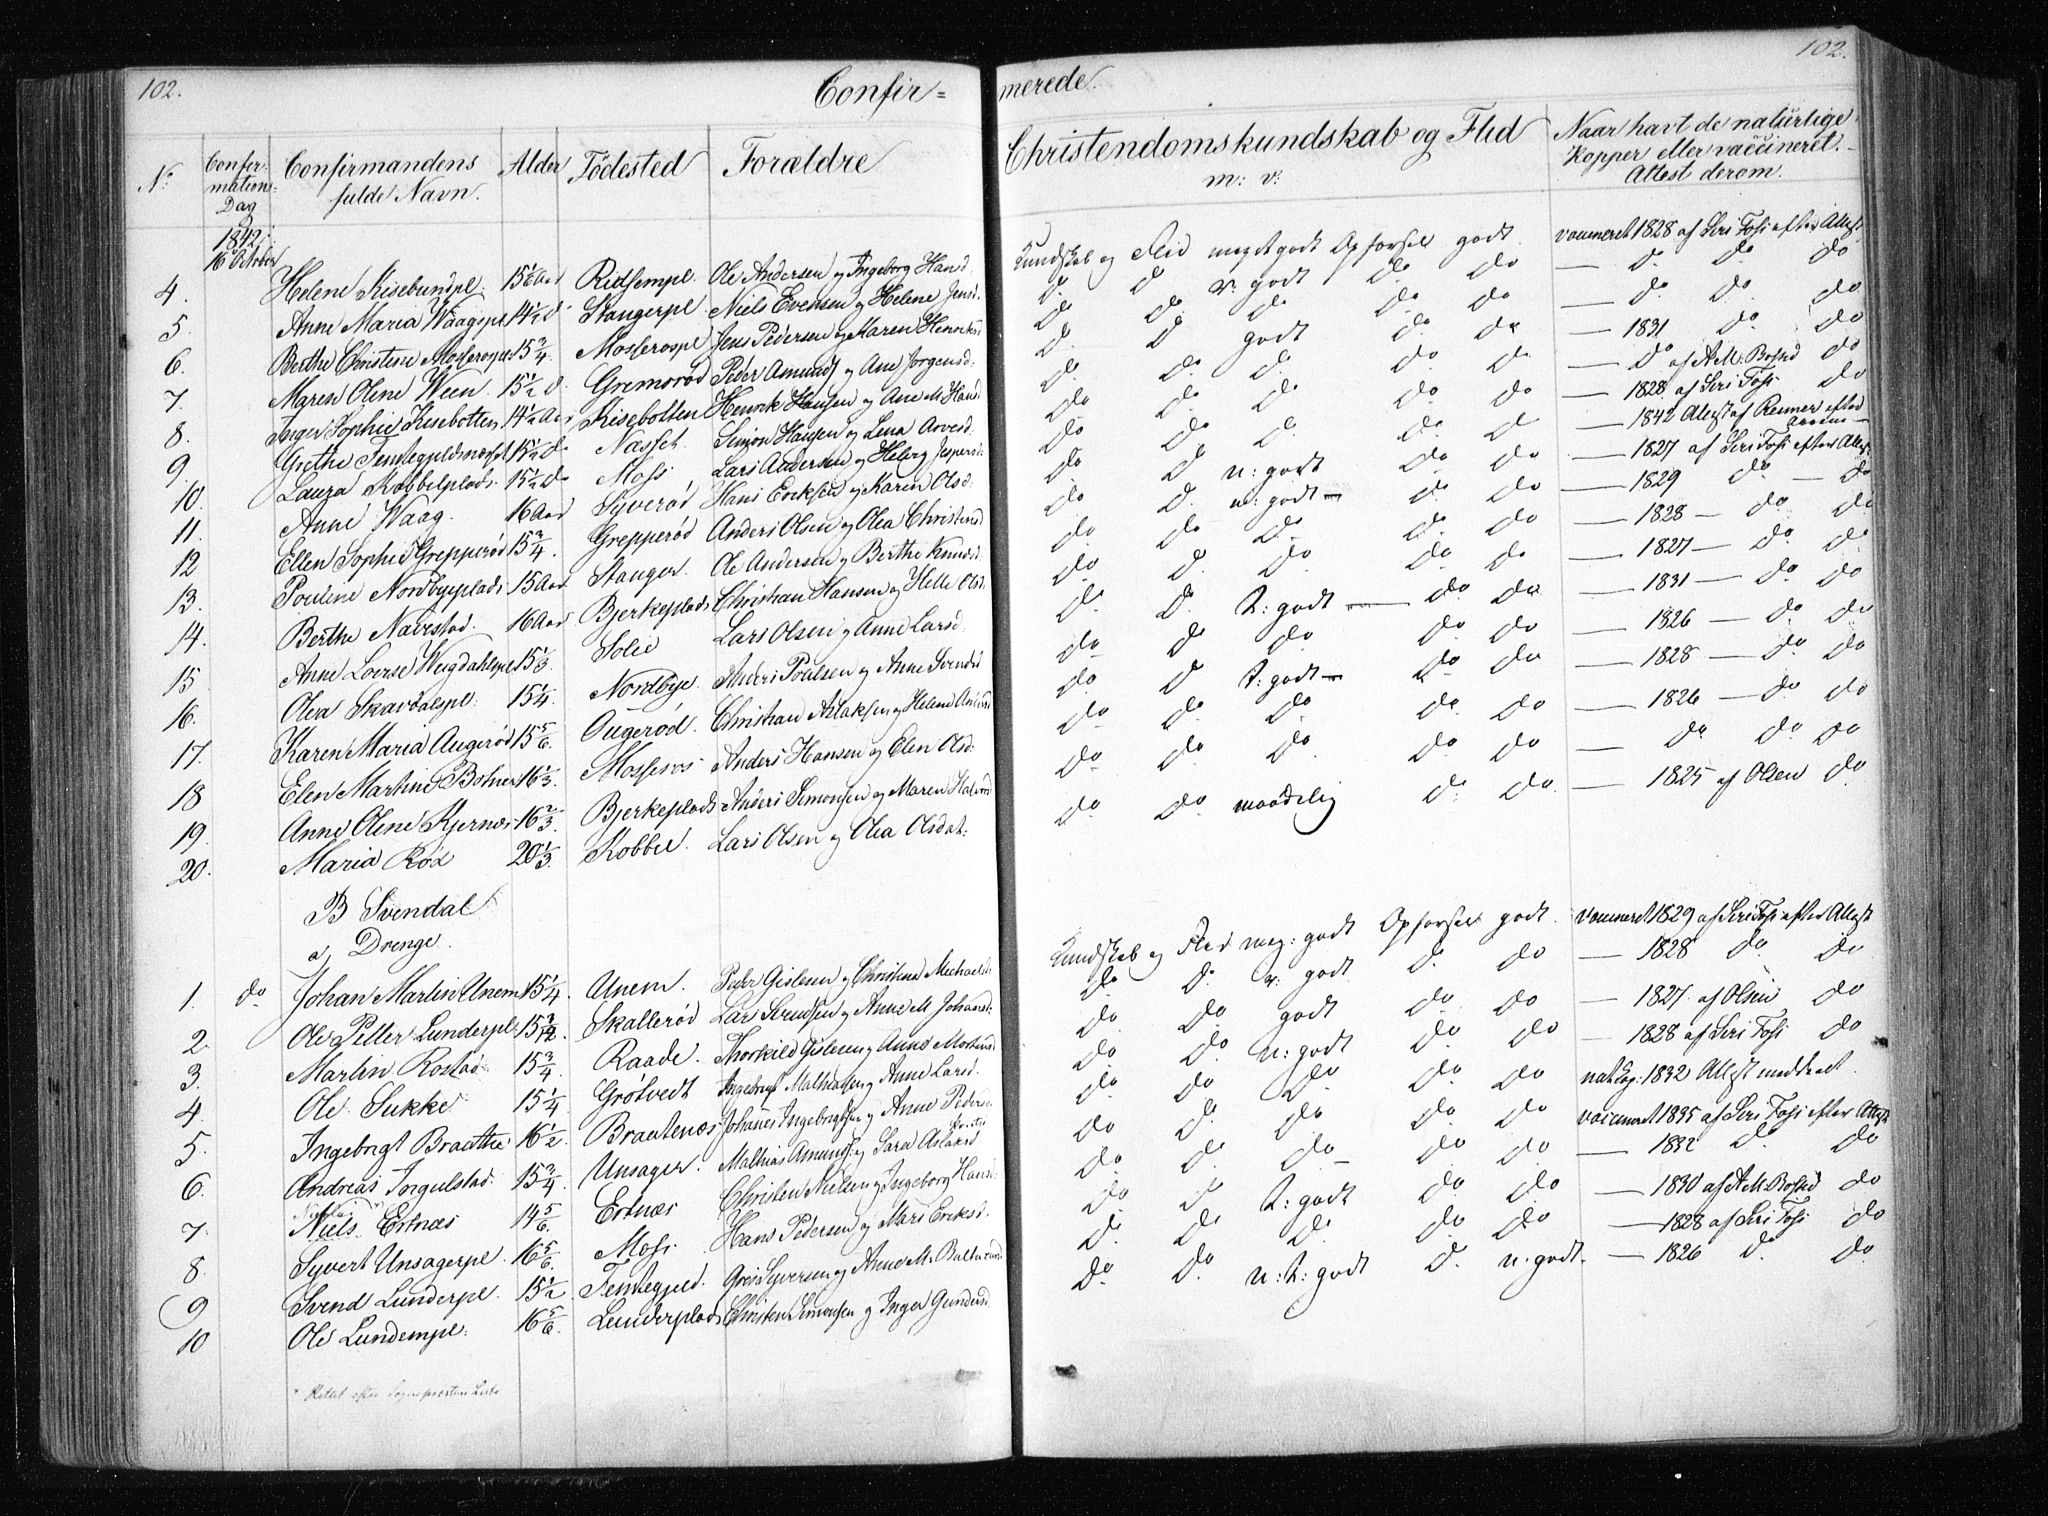 102.
Confir=
merede.
102.
No: Confirmations Dag Confirmandens fulde Navn. Alder Fødested Forældre Christendomskundskab og Flid m: v: Naar havt de naturlige Kopper eller vaccineret. Attest derom.
1842
16 October
4. Helene Kisebundpl. Ridsempl. Ole Andersen og Ingeborg Hansd. Kundskab og Flid meget godt Opførsel godt. vaccineret 1828 af Siri Fosi efter Attest
5. Anne Maria Waagspl 14½ do Stangerpl Niels Evensen og Helene Jensd. do do v. godt do do — do do do
6. Berthe Christine 15¾ Mosserospl Jens Pedersen og Maren Henriksd do do do do do — do do do
7. Maren Oline Ween 15½ d. Gremorød Peder Amunds og Ane Jørgensd. do do godt do do — 1831 do do
8. Inger Sophie Kisebotten 14½ Aar Kisebotten Henrik Hansen og Ane M. Hansd do do do do do — do af A.M. Bosed do
9. Grethe 15½ do Næsset Simon Hansen og Lena Arvesd. do do do do do — 1828 af Siri Fosi do
10. Laura Kobbelplads. 15½ do Moss Lars Andersen og do do do do do — 1842 Attest af Renner
11. Anne Waag. 16 Aar Syverød Hans Eriksen og Karen Olsd. do do u: godt do do — 1827 af Siri Fosi efter Attest
12 Ellen Sophie Grepperød 15¾. Grepperød Anders Olsen og Olea Christensd do do u: godt — do do — 1829 do — do
13. Pouline Nordbyeplads 15 Aar Stanger. Ole Andersen og Berthe Knudsd do do do do do — 1828 — do do
14. Berthe Navestad. 16 Aar Bjerkeplads Christian Hansen og Helle Olsd. do do do do do — 1827 — do do
15 Anne Lovise 15⅓ Solie Lars Olsen og Anne Larsd. do do t: godt — do do — 1831 — do do
16. Olea Skavdalspl: 15¼. Nordbye. Anders Poulsen og Anne Svendsd do do do do do — 1826 — do do
17. Karen Maria Augerød 15⅚. Ougerød. Christian Aslaksen og Helene do do t: godt — do do — 1828 — do do
18 Elen Martine Bolner 16⅓. Mosseros Anders Hansen og Elen Olsd: do do do do do — 1826 — do do
19. Anne Oline Kjernæs 16⅔. Bjerkeplads Anders Simonsen og Maren do do do do do — do do do
20. Maria Rød 20⅓. Kobbel. Lars Olsen og Olea Olsdat: do do maadelig do do — 1825 af Olsen do
B Svendal
a, Drenge.
1. do Johan Martin Unem 15¼. Unem. Peder Gislesen og Christine Michaelsd: Kundskab og Flid meg: godt Opførsel godt. vaccineret 1829 af Siri Fosi efter Attest
2. Ole Petter Lunderpl. Skallerød Lars Svendsen og Anne M. Johansd: do do v. godt do do — 1828 do do
3. Martin Rostad 15¾ Raade. Thorkild Gislesen og Anne Mortensd do do godt do do — 1827 af Olsen do
4. Ole Sukke 15¼ Grøtvedt Ingebrigt Mathiasen og Anne Larsd. do do u: godt do do — 1828 af Siri Fosi do
5. Ingebrigt Braathe 16½ Braatenæs Johanes Ingebrigtsen og Anne Pedersd. do do do do do nat. Kop: 1832 Attest meddeelt.
6. Andreas Ingulstad. 15¾ Unsager. Mathias Amunds og Sara do do do do do vaccineret 1835 af Siri Fosi efter Attest
7. Niels Ertnæs 14⅚ Ertnæs Christen Nielsen og Ingeborg Hansd. do do do do do — 1832 do do
8. Syvert Unsagerpl. 16⅚. Moss Hans Pedersen og Mari Eriksd. do do t: godt do do — 1830 af A.M. Bosed do
9 Svend Lunderpl. 15½ Fenkegjeld. Syversen og Anne M. do do do do do — 1828 af Siri Fosi do
10 Ole Lundempl: 16⅚. Lunderplads Christen Simonsen og Inger Gundersd. do do u: t: godt do u. godt. — 1826 do do
* Rettet efter Sognepræstens Liste